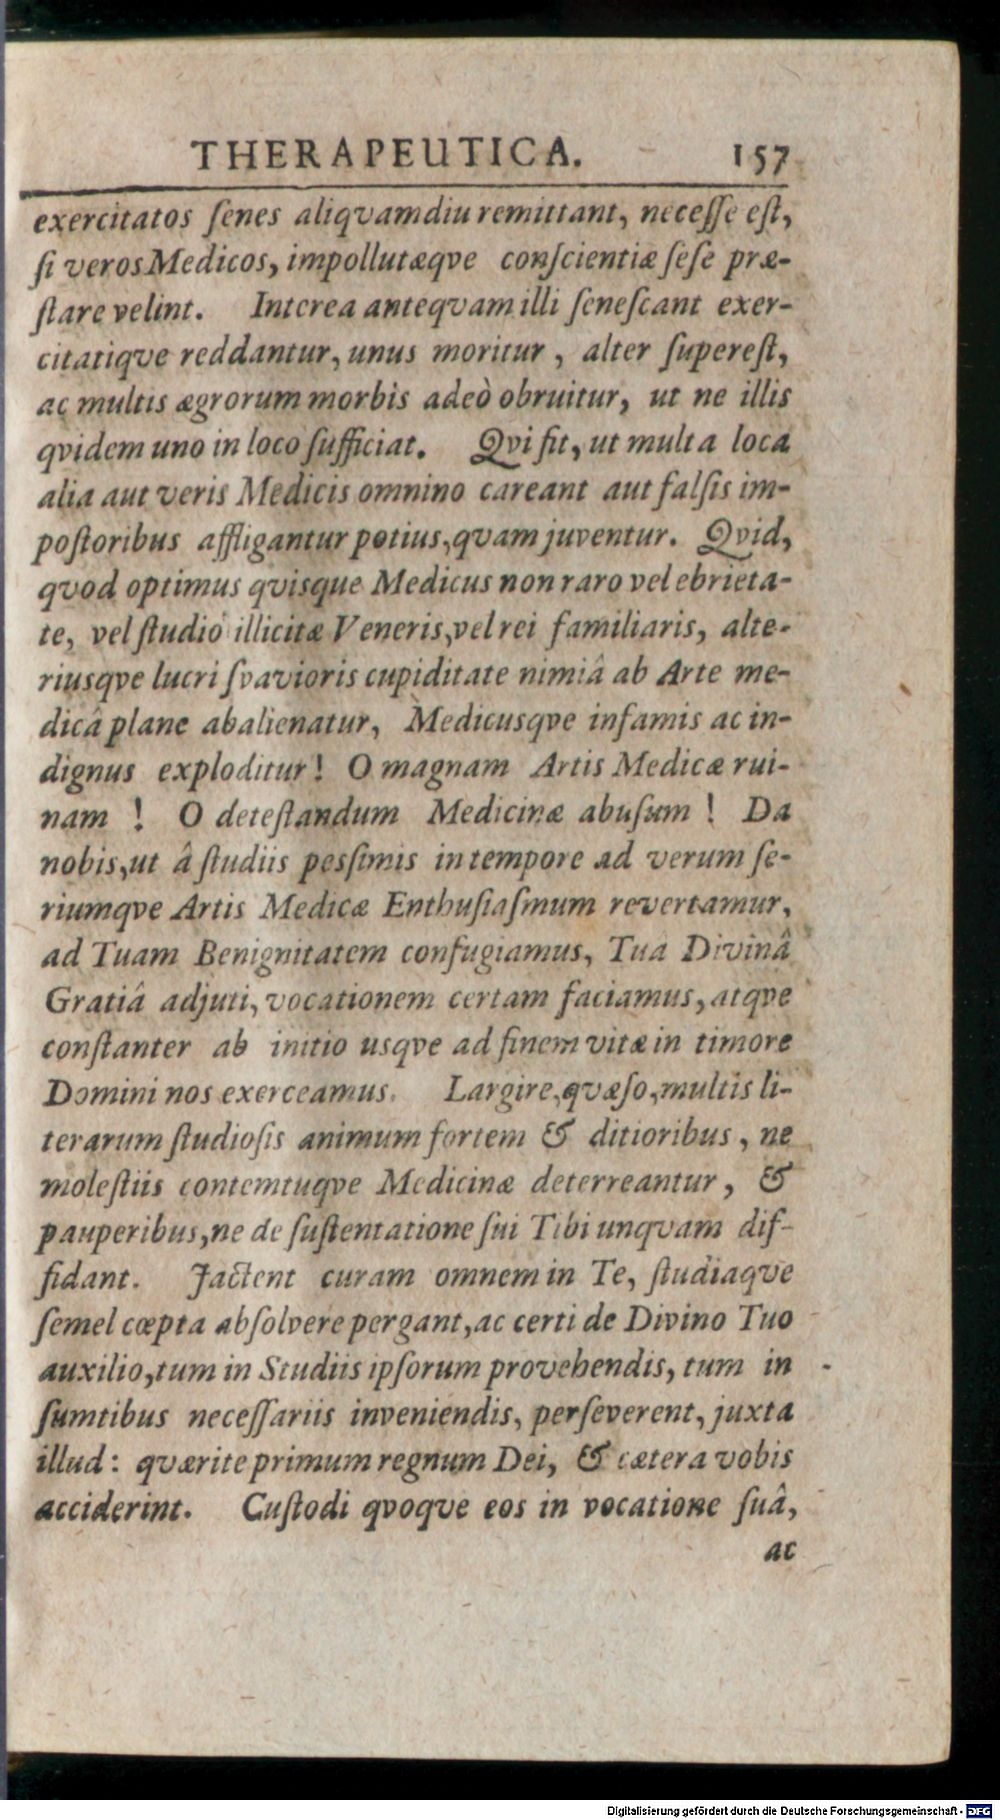 THERAPEUTICA. 157
exercitatos ſenes aliqvamdiu remittant, neceſſe eſt,
ſi veros Medicos, impollutæqve conſcientiæ ſeſe præ-
ſtare velint. Interea anteqvam illi ſeneſcant exer-
citatiqve reddantur, unus moritur, alter ſupereſt,
ac multis ægrorum morbis adeò obruitur, ut ne illis
qvidem uno in loco ſufficiat. Qvi fit, ut multa loca
alia aut veris Medicis omnino careant aut falſis im-
poſtoribus affligantur potius, qvam juventur. Qvid,
qvod optimus qvisque Medicus non raro vel ebrieta-
te, vel ſtudio illicitæ Veneris, vel rei familiaris, alte-
riusqve lucri ſvavioris cupiditate nimiâ ab Arte me-
dicâ plane abalienatur, Medicusqve infamis ac in-
dignus exploditur! O magnam Artis Medicæ rui-
nam ! O deteſtandum Medicinæ abuſum ! Da
nobis, ut â ſtudiis peſſimis in tempore ad verum ſe-
riumqve Artis Medicæ Enthuſiaſmum revertamur,
ad Tuam Benignitatem confugiamus, Tua Divinâ
Gratiâ adjuti, vocationem certam faciamus, atqve
conſtanter ab initio usqve ad finem vitæ in timore
Domini nos exerceamus. Largire, qvæſo, multis li-
terarum ſtudioſis animum fortem & ditioribus, ne
moleſtiis contemtuqve Medicinæ deterreantur, &
pauperibus, ne de ſuſtentatione ſui Tibi unqvam dif-
fidant. Jactent curam omnem in Te, ſtudiaqve
ſemel cœpta abſolvere pergant, ac certi de Divino Tuo
auxilio, tum in Studiis ipſorum provehendis, tum in
ſumtibus neceſſariis inveniendis, perſeverent, juxta
illud: qværite primum regnum Dei, & cætera vobis
acciderint. Cuſtodi qvoqve eos in vocatione ſuâ,
ac
Digitalisierung gefördert durch die Deutsche Forschungsgemeinschaft - DFG